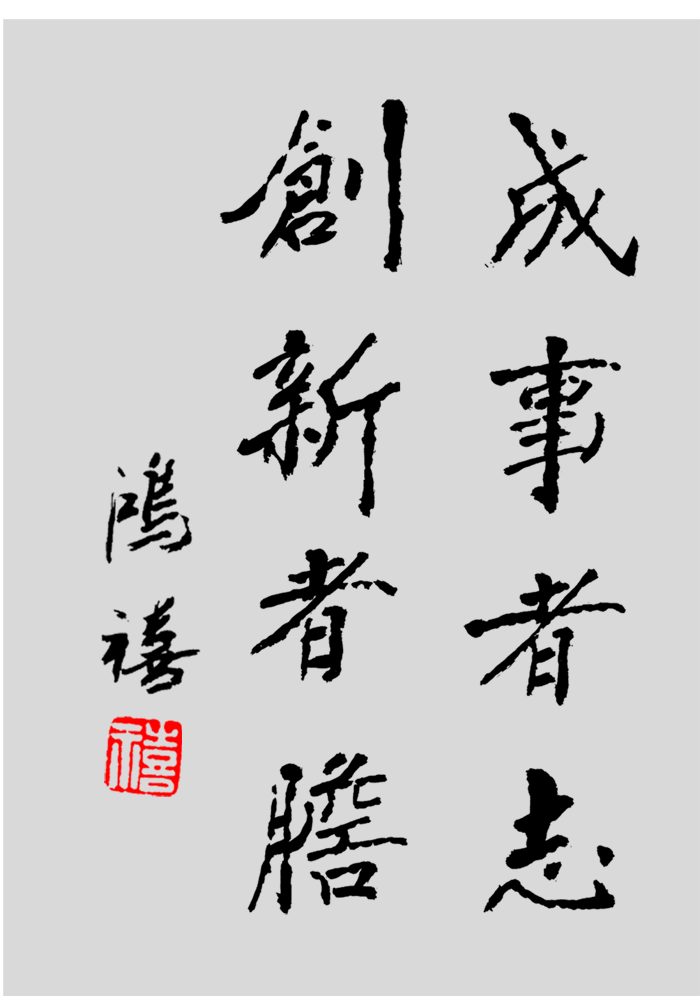 成事者志
創新者膽
鴻禧
禧